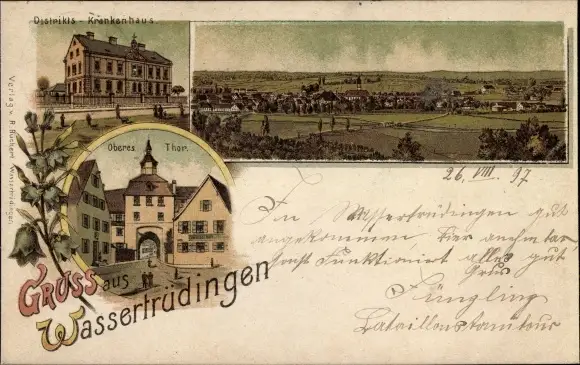 Distrikts - Krankenhaus.
Oberes Thor.
Verlag v. R. Rückert Wassertrüdingen
GRUSS aus
Wassertrüdingen
26. VIII. 97
In Wassertrüdingen gut
angekommen, hier
sonst Funktionirt alles gut
Gruss
Jüngling
Bataillonstambour